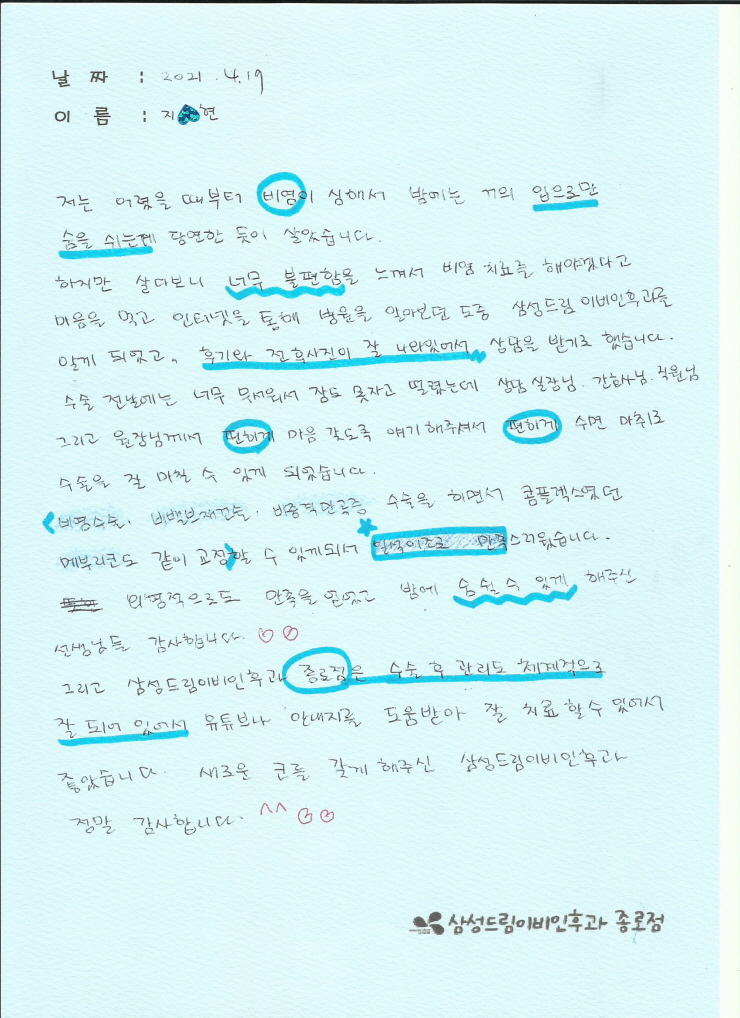 날 짜 : 2021. 4. 19
이 름 : 지 현
저는 어렸을 때부터 비염이 심해서 밤에는 거의 입으로만
숨을 쉬는게 당연한 듯이 살았습니다.
하지만 살다보니 너무 불편함을 느껴서 비염 치료를 해야겠다고
마음을 먹고 인터넷을 통해 병원을 알아보던 도중 삼성드림 이비인후과를
알게 되었고, 후기와 전후사진이 잘 나와있어서 상담을 받기로 했습니다.
수술 전날에는 너무 무서워서 잠도 못자고 떨렸는데 상담 실장님, 간호사님, 직원님
그리고 원장님께서 편하게 마음 갖도록 얘기해주셔서 편하게 수면 마취로
수술을 잘 마칠 수 있게 되었습니다.
비염수술, 비밸브재건술, 비중격만곡증 수술을 하면서 콤플렉스였던
메부리코도 같이 교정할 수 있게되서 일석이조로 만족스러웠습니다.
외형적으로도 만족을 얻었고 밤에 숨쉴 수 있게 해주신
선생님들 감사합니다.
그리고 삼성드림이비인후과 종로점은 수술 후 관리도 체계적으로
잘 되어 있어서 유튜브나 안내지를 도움받아 잘 치료할 수 있어서
좋았습니다. 새로운 코를 갖게 해주신 삼성드림이비인후과
정말 감사합니다. ^^
삼성드림이비인후과 종로점